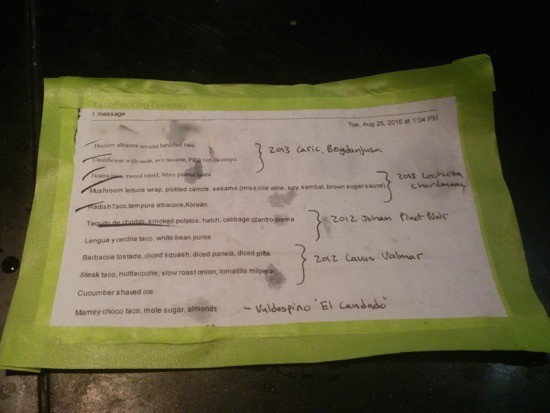 TacoFuckingTuesday
1 message
Tue, Aug 25, 2015 at 1:04 PM
taco
Cauflower with
2013 Caric, Bogdanjusa
squid,
Mushroom lettuce wrap, pickled carrots, sesame (miso,rice wine, soy, sambal, brown sugar sauce)
2013
chardonnay
Radish Taco,tempura albacore,Korean
Taquito de chorizo, smoked potatos, hatch, cabbage cilantro crema
2012 Johan Pinot Noir
Lengua y cecina taco, white bean puree
Barbacoa tostada, diced squash, diced panela, diced piña
2012 Cavus Vabmar
Steak taco, huitlacoche, slow roast onion, tomatillo milpero
Cucumber shaved ice
Mamey choco taco, mole sugar, almonds
- Valdespino 'El Candado'